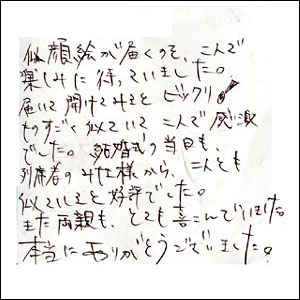 似顔絵が届くのを、二人で
楽しみに待っていました。
届いて開けてみると ビックリ!
ものすごく似ていて 二人で感激
でした。 結婚式の当日も、
列席者のみな様から、二人とも
似ていると好評でした。
また両親も、とても喜こんでいました。
本当にありがとうございました。